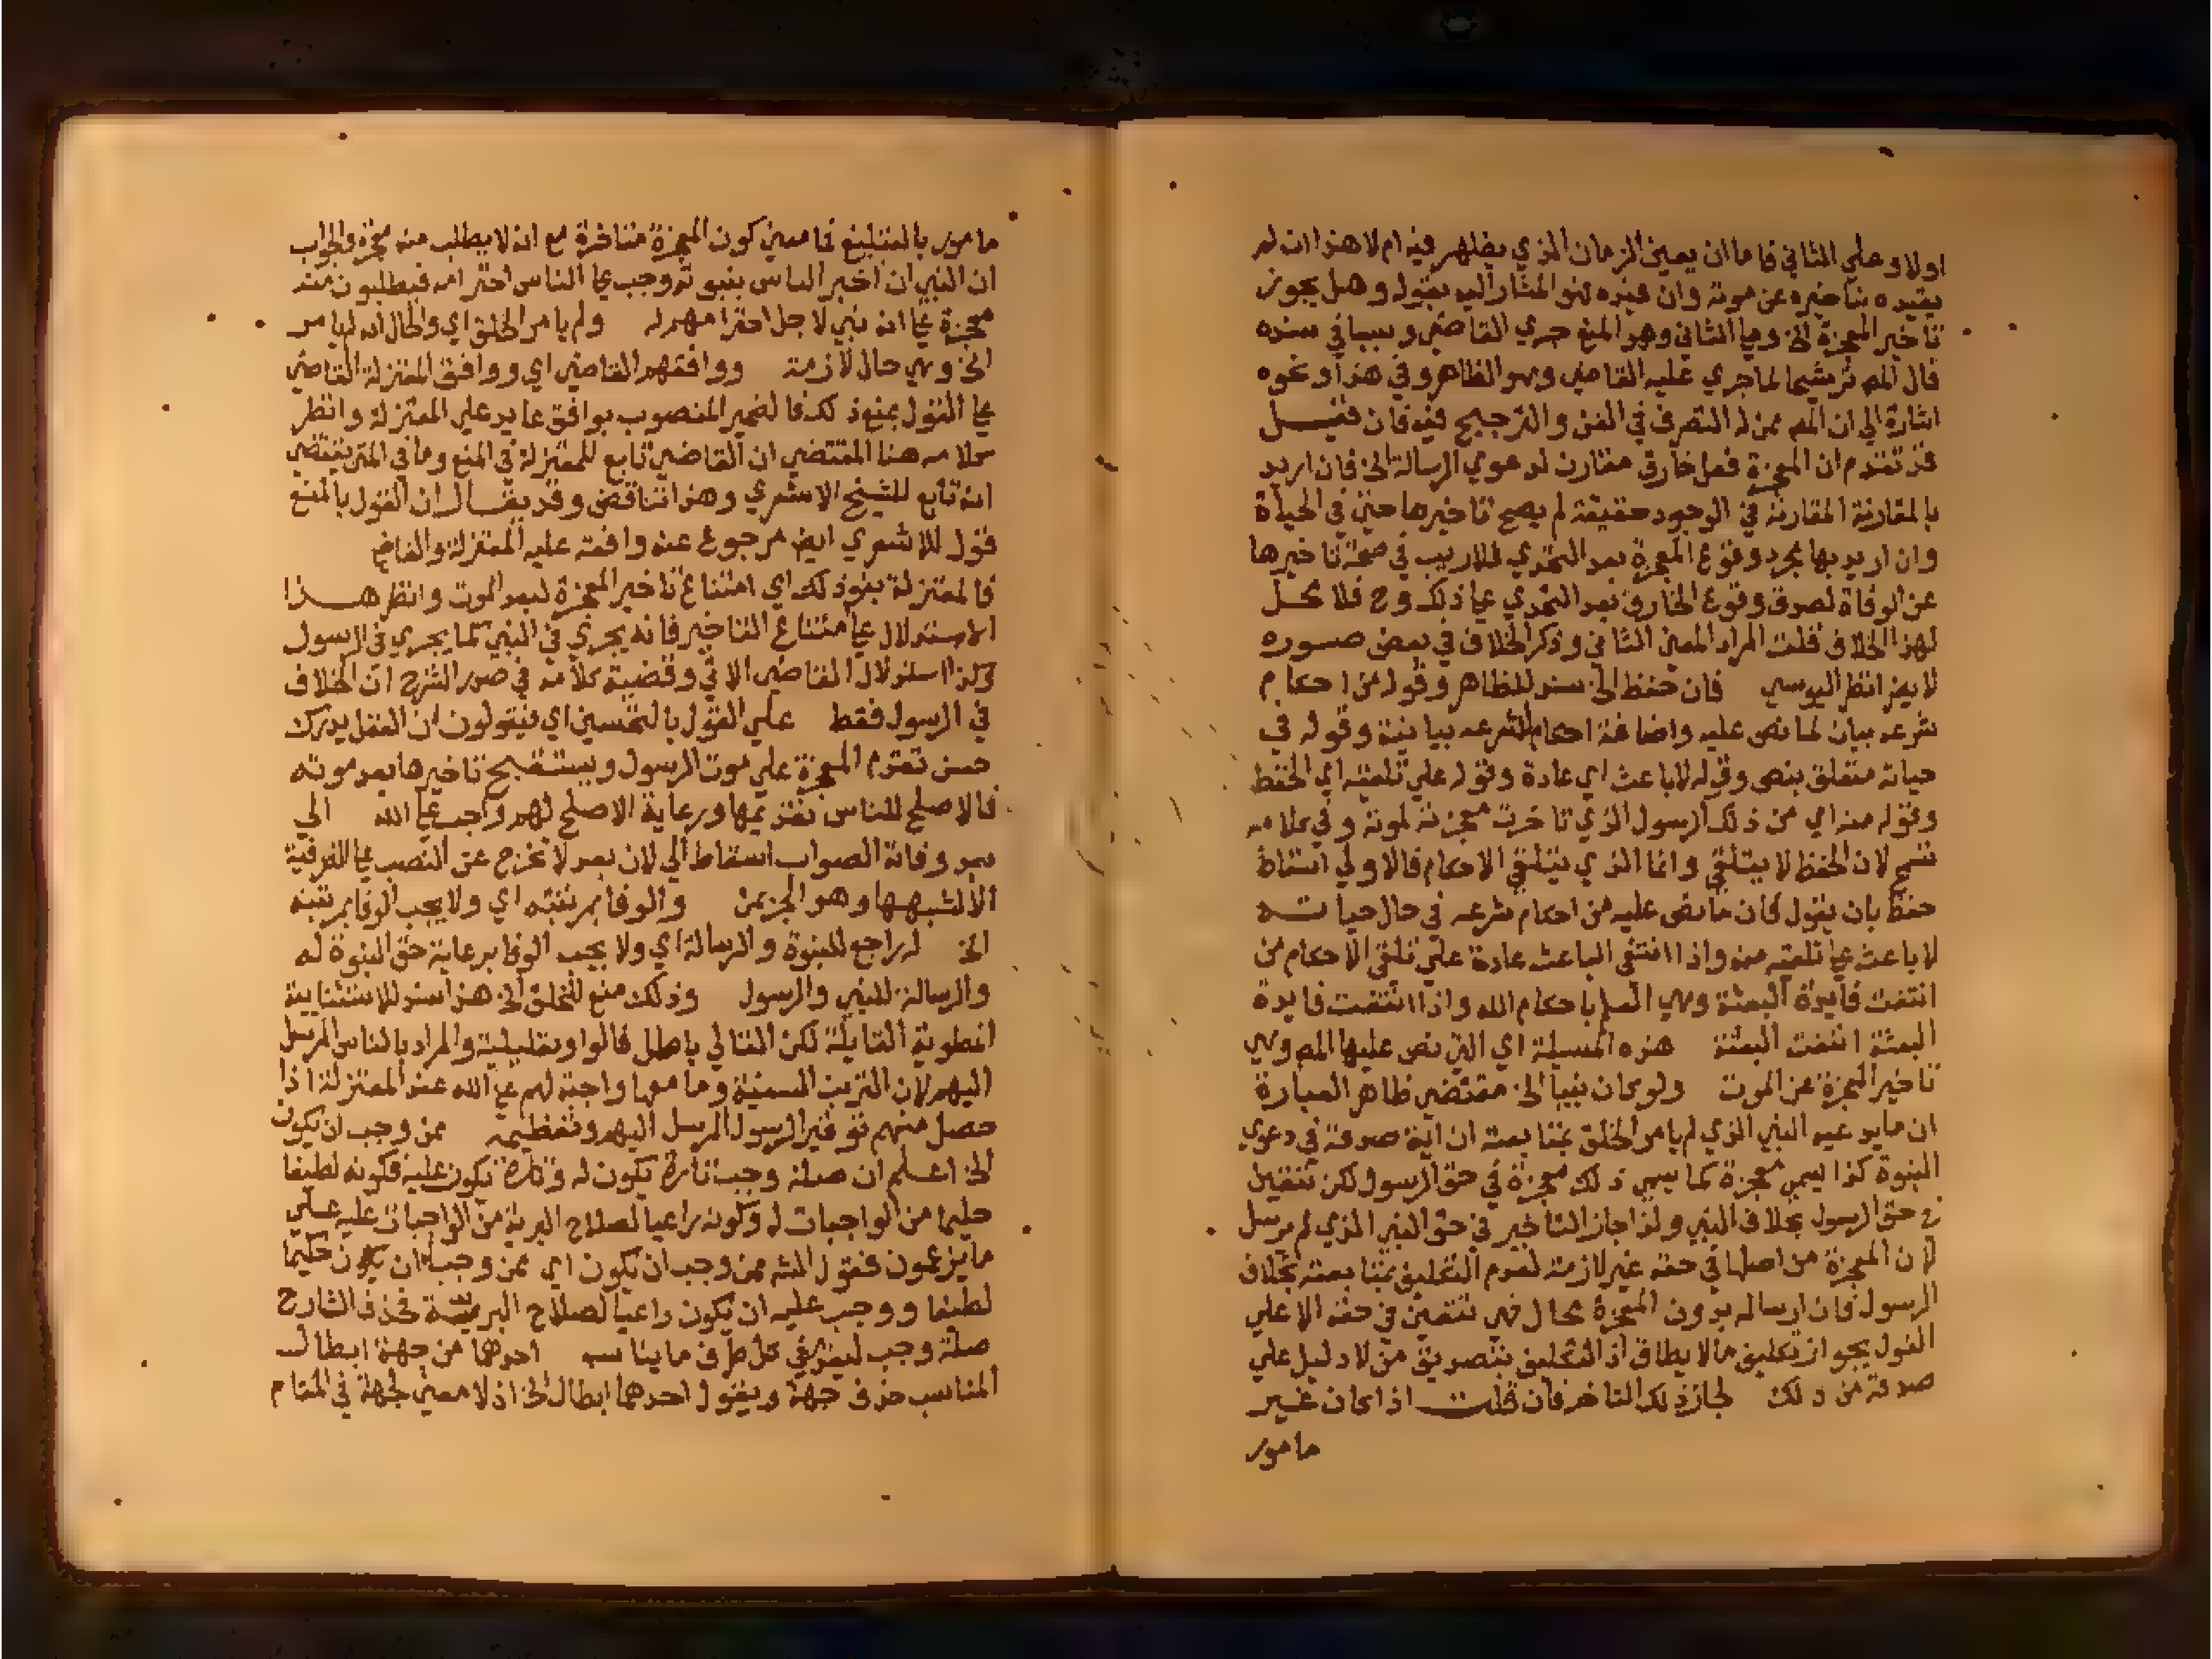 اولا وعلي الثاني فاما ان يعين الزمان الذي يظهر فيه ام لا هذا ان لم
يقيده بتاخيره عن موته وان قيده فهو المشار اليه بقوله وهل يجوز
تاخير المعجزة الخ وعلي الثاني وهو المنع جري القاضي وسياتي سنده
قال المصـ ثم مشيها لما جري عليه القاضي وهو الظاهر وفي هذا ونحوه
اشارة الي ان المصـ ممن له التصرف في الفن والترجيح فيه فان قيــل
قد تقدم ان المعجزة فعل خارق مقارن لدعوي الرسالة الخ فان اريد
بالمقارنة المقارنة في الوجود حقيقة لم يصح تاخيرها حتي في الحياة
وان اريد بها مجرد وقوع المعجزة بعد التحدي فلا ريب في صحة تاخيرها
عن الوفاة لصدق وقوع الخارق بعد التحدي علي ذلك وح فلا محــل
لهذا الخلاف قلت المراد المعني الثاني وذكر الخلاف في بعض صوره
لا يضر انظر اليوسي فان حفظ الخ سند للظاهر وقوله من احكام
شرعه بيان لما نص عليه واضافة احكام للشرعه بيانية وقوله في
حياته متعلق بنص وقوله لا باعث اي عادة وقوله علي تلقيه اي الحفظ
وقوله منه اي من ذلك الرسول الذي تاخرت معجزته لموته وفي كلامه
تسمح لان الحفظ لا يتلقي وانما الذي يتلقي الاحكام فالاولي اسقاط
حفظ بان يقول كان ما نص عليه من احكام شرعه في حال حياتــه
لا باعث علي تلقيه منه واذا انتفي الباعث عادة علي تلقي الاحكام من
انتفت فايدة البعثة وهي العلم باحكام الله واذا انتفت فايدة
البعثة انتفت البعثة هذه المسيلة اي التي نص عليها المصـ وهي
تاخير المعجزة عن الموت ولو كان نبيا الخ مقتضي ظاهر العبارة
ان ما يدعيه النبي الذي لم يامر الخلق بمتابعته ان اية صدقه في دعوي
النبوة كذا يسمي معجزة كما يسمي ذلك معجزة في حق الرسول لكن تتعين
في حق الرسول بخلاف النبي ولذا جاز التاخير في حق النبي الذي لم يرسل
لان المعجزة من اصلها في حقه غير لازمة لعدم التكليف بمتابعته بخلاف
الرسول فان ارساله بدون المعجزة محال فهي تتعين في حقه الا علي
القول بجواز تكليف ما لا يطاق اذ التكليف بتصديق من لا دليل علي
صدقه من ذلك لجاز ذلك التاخر فان قلت اذا كان غــير
مامور
مامور بالتبليغ فما معني كون المعجزة متاخرة مع انه لا يطلب منه معجزة والجواب
ان النبي ان اخبر الناس بنبوته وجب علي الناس احترامه فيطلبون منه
معجزة علي انه نبي لاجل احترامهم له ولم يامر الخلق اي والحال انه لم يامر
الخ وهي حال لازمة ووافقهم القاضي اي ووافق المعتزلة القاضي
علي القول بمنع ذلك فالضمير المنصوب بوافق عايد علي المعتزلة وانظر
كلامه هنا المقتضي ان القاضي تابع للمعتزلة في المنع وما في المتن يقتضي
انه تابع للشيخ الاشعري وهذا تناقض وقد يقــال ان القول بالمنع
قول للاشعري ايضا مرجوع عنه وافقه عليه المعتزلة والقاضي
فالمعتزلة بنو ذلك اي امتناع تاخير المعجزة لبعد الموت وانظر هــذا
الاستدلال علي امتناع التاخير فانه يجري في النبي كما يجري في الرسول
وكذا استدلال القاضي الاتي وقضية كلامه في صور الشرح ان الخلاف
في الرسول فقط علي القول بالتحسين اي فيقولون ان العقل يدرك
حسن تقدم المعجزة علي موت الرسول ويستقبح تاخيرها بعد موته
فالاصلح للناس تقديمها ورعاية الاصلح لهم واجب علي الله الي
بعد وفاته الصواب اسقاط الي لان بعد لا تخرج عن النصب علي الظرفية
الا لشبهها وهو الجر بمن والوفا بمرتبته اي ولا يجب الوفا بمرتبته
الخ له راجع للنبوة والرسالة اي ولا يجب الوفا برعاية حق النبوة له
والرسالة للنبي والرسول وذلك منع للخلق الخ هذا سند للاستثنايية
المطوية القايلة لكن التالي باطل فالواو تعليلية والمراد بالناس المرسل
اليهم لان التربت المسمية وما معها واجبة لهم علي الله عند المعتزلة اذا
حصل منهم توقير الرسول المرسل اليهم وتعظيمه ممن وجب ان يكون
الخ اعلم ان صلة وجب تارة تكون له وتارة تكون عليه فكونه لطيفا
حليما من الواجبات له وكونه راعيا لصلاح البرية من الواجبات عليه علــي
ما يزعمون فقول الشـ ممن وجب ان يكون اي ممن وجب له ان يكون حكيما
لطيفا ووجب عليه ان يكون راعيا لصلاح البرية فحذف الشارح
صلة وجب ليقدر في كل طرف ما يناسبه احدها من جهة ابطال
المناسب حذف جهة ويقول احدهما ابطال الخ اذ لا معني لجهة في المقام